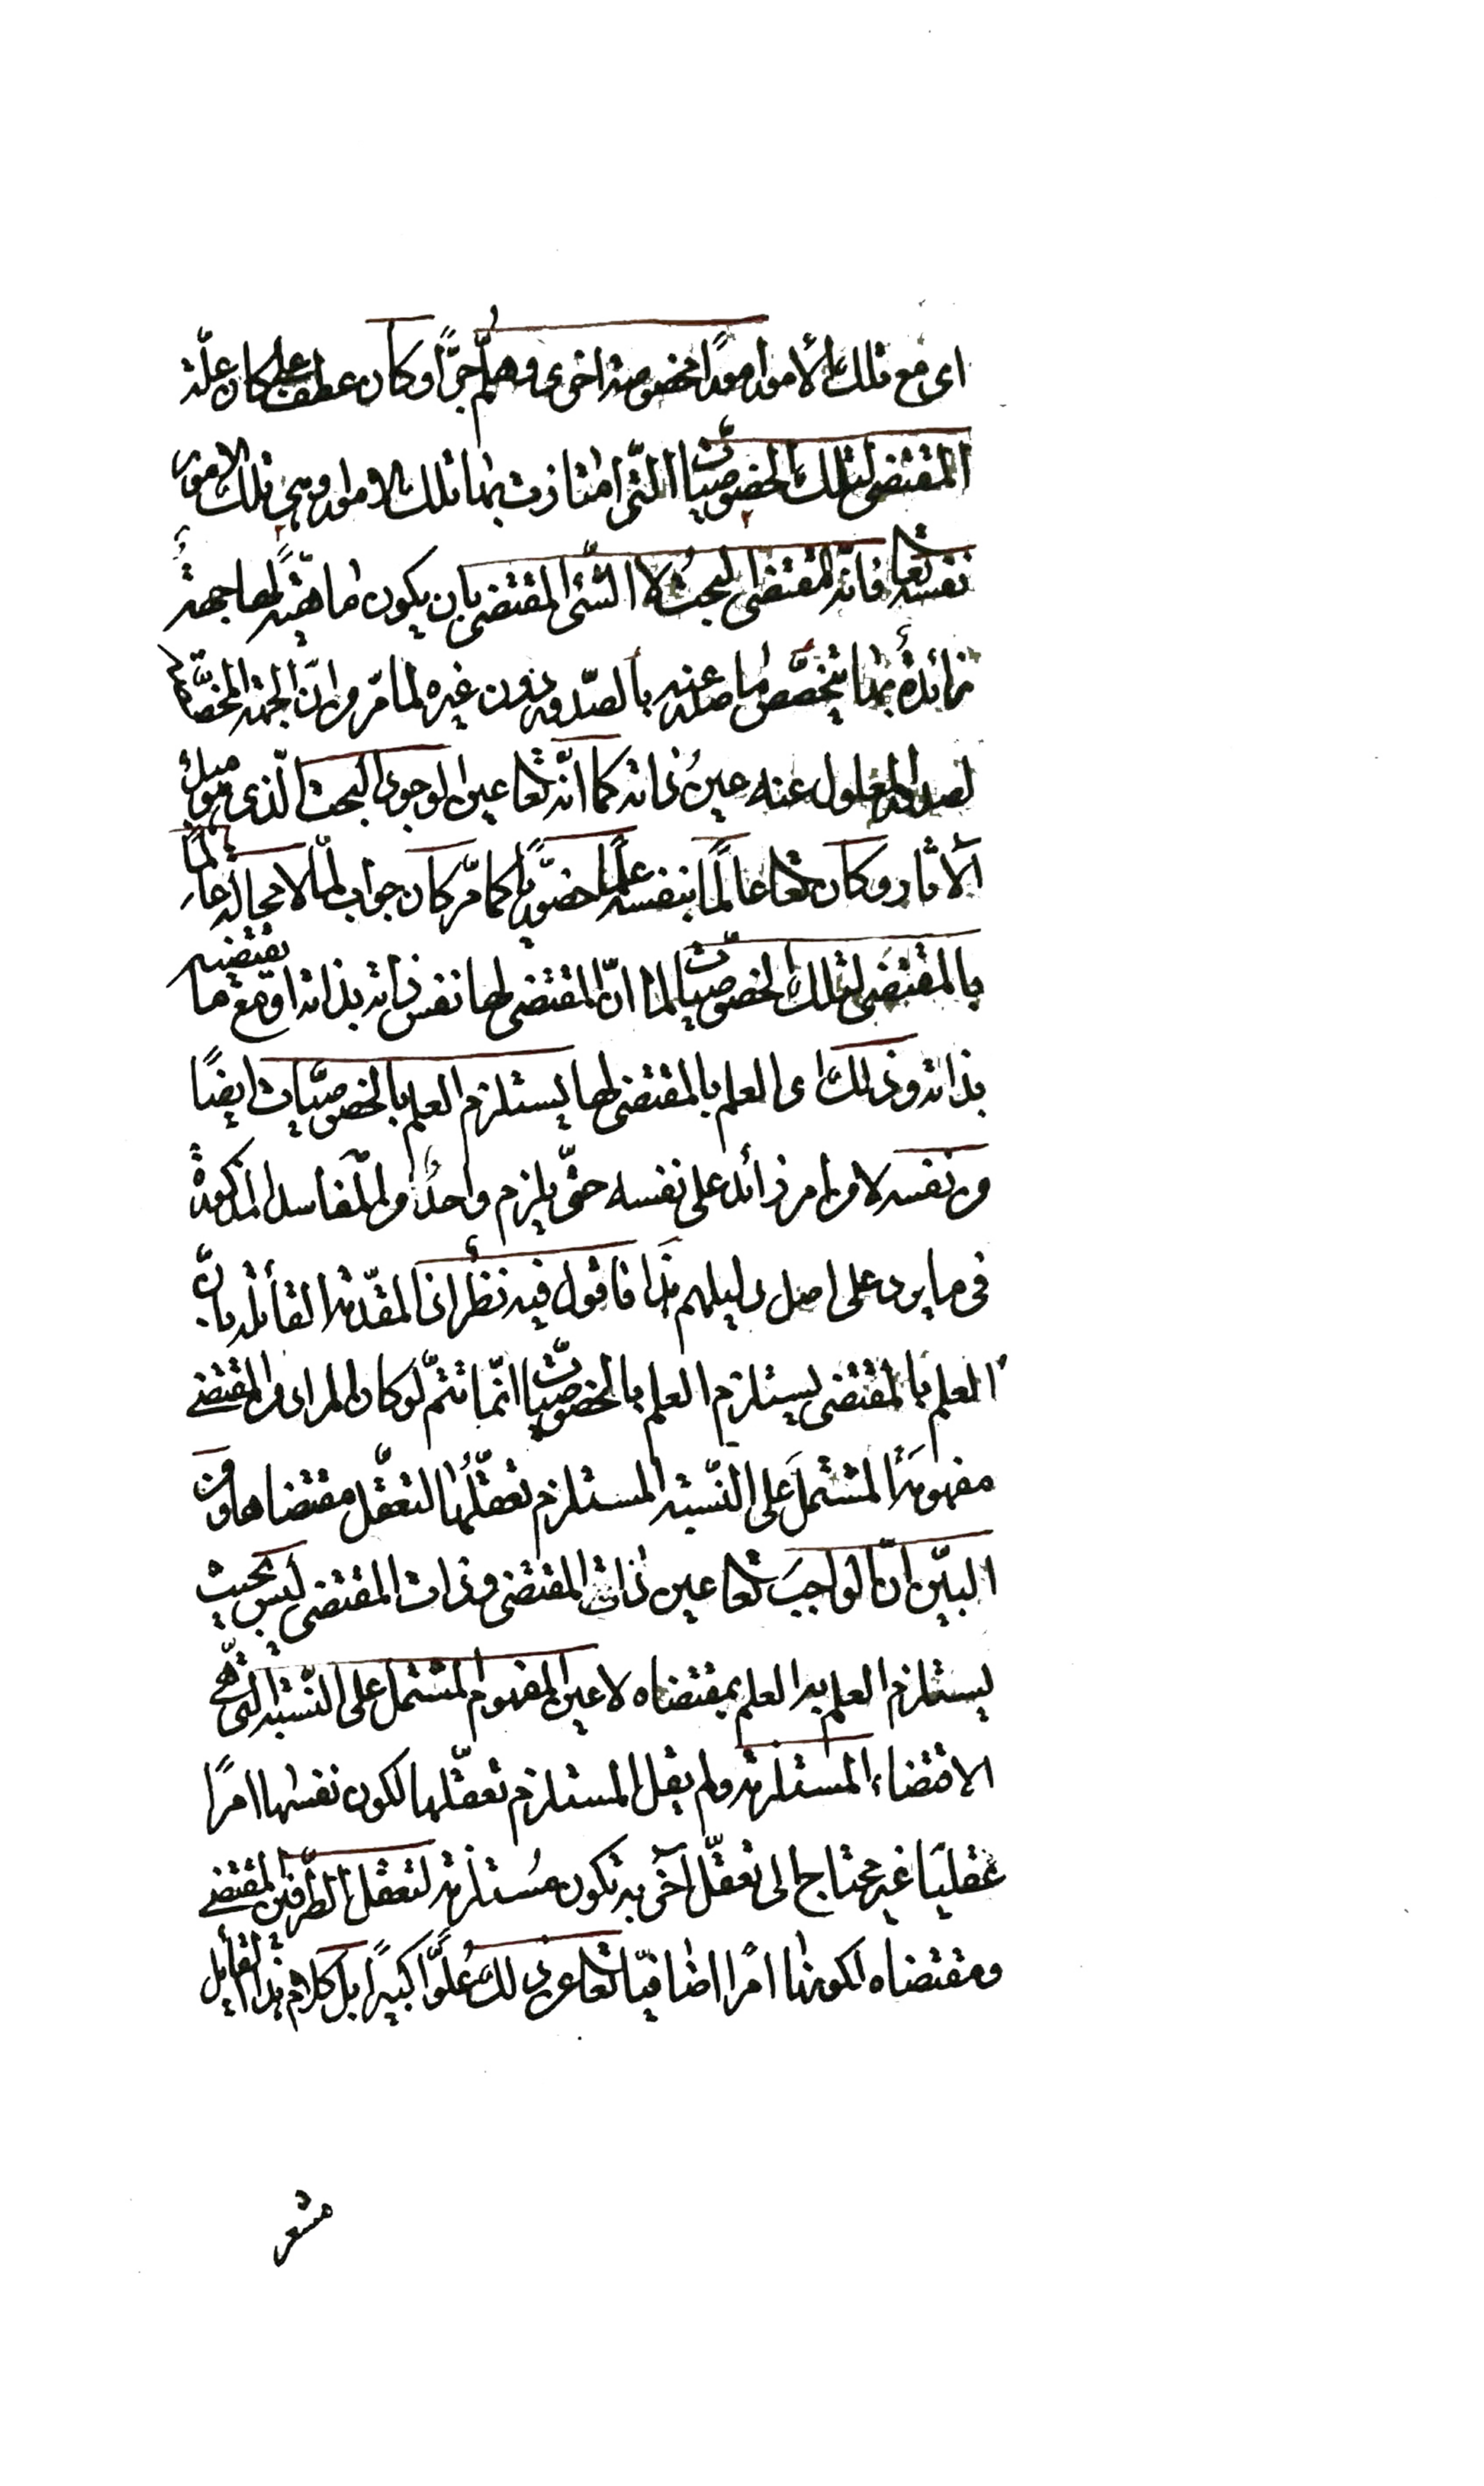 اى مع تلك الأمور امورًا مخصوصة اخرى وهلمّ جرًّا وكان عطف على كان علّة
المقتضى لتلك الخصوصيّات الّتى امتازت بها تلك الامور وهى تلك الامور
نفسه تعا فانّه المقتضى البحت لا الشّئ المقتضى بان يكون ماهيّة لها جهة
زائدة بها يتخصّص ما صدر عنه بالصّدور دون غيره لما مرّ من انّ الجهة المخصّصة
لصدور المعلول عنه عينُ ذاته كما انّه تعا عين الوجود البحت الّذى هو مبدأ
الآثار وكان تعا عالمًا بنفسه علمًا حضوريًّا كما مرّ كان جواب لمّا لا محالة عالمًا
بالمقتضى لتلك الخصوصيّات لما انّ المقتضى لها نفس ذاته بذاته او مع ما تقتضيه
بذاته وذلك اى العلم بالمقتضى لها يستلزم العلم بالخصوصيّات ايضًا
من نفسه لا من امر زائد على نفسه حتّى يلزم واحدٌ من المفاسد المذكورة
فى ما يرد على اصل دليلهم هذا فاقول فيه نظر اذ المقدّمة القائلة بانّ
العلم بالمقتضى يستلزم العلم بالخصوصيّات انّما تتمّ لو كان المراد من المقتضى
مفهومَه المشتملَ على النّسبة المستلزم تعقّلُها لتعقّل مقتضاها ومن
البيّن انّ الواجبَ تعا عين ذات المقتضى وذات المقتضى ليس بحيث
يستلزم العلم به العلم بمقتضاه لا عين المفهوم المشتمل على النّسبة الّتى هى
الاقتضاء المستلزمة ولم يقل المستلزم تعقّلها لكون نفسها امرًا
عقليًا غير محتاج الى تعقّل آخر به تكون مُستلزمة لتعقل الطّرفين المقتضى
ومقتضاه لكونها امرًا اضافيّا تعا عن ذلك عُلوًّا كبيرًا بل كلام هذا القايل
مشعر